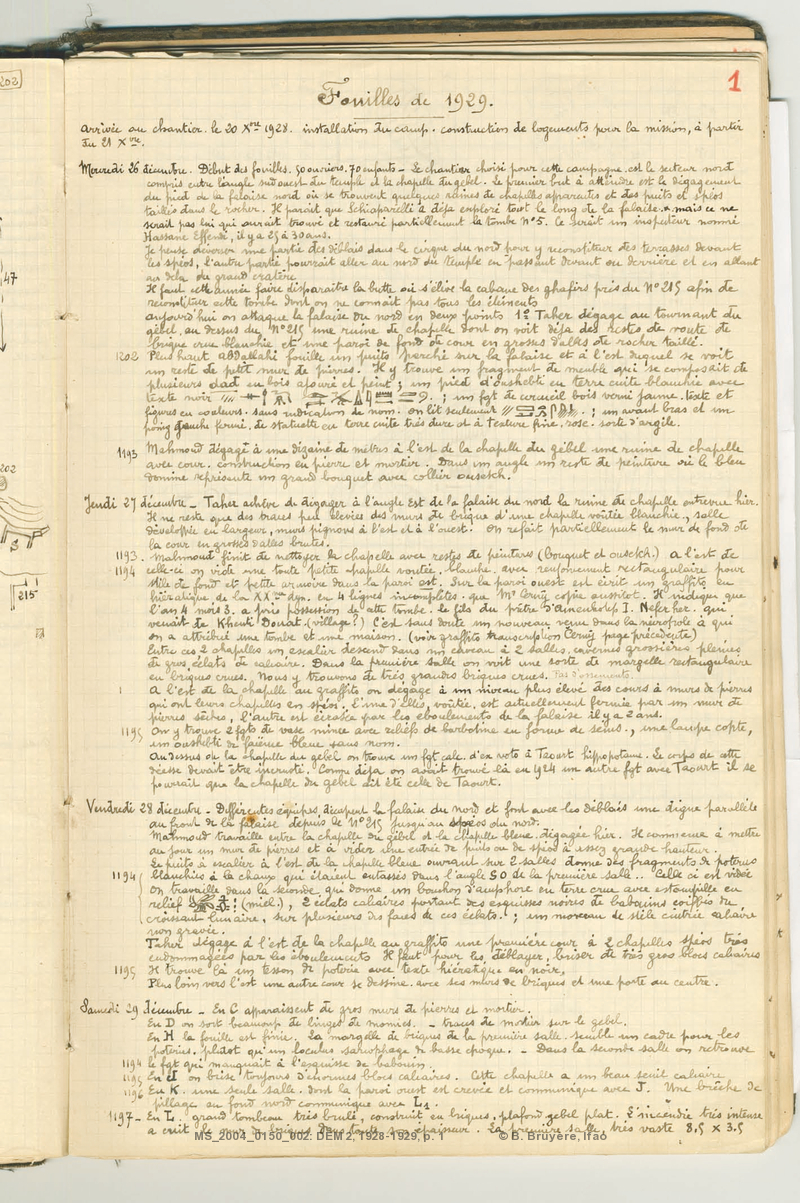 1
Fouilles de 1929.
arrivée au chantier. le 20 Xbre 1928. installation du camp. construction de logements pour la mission, à partir
du 21 Xbre.
Mercredi 26 décembre. Début des fouilles. 50 ouvriers. 70 enfants - Le chantier choisi pour cette campagne est le secteur nord
compris entre l'angle sud ouest du temple et la chapelle du gebel. Le premier but à atteindre est le dégagement
du pied de la falaise nord où se trouvent quelques ruines de chapelles apparentes et des puits et spéos
taillés dans le rocher. Il paraît que Schiaparelli a déjà exploré tout le long de la falaise. mais ce ne
serait pas lui qui aurait trouvé et restauré partiellement la tombe N° 5. Ce serait un inspecteur nommé
Hassane Effendi, il y a 25 à 30 ans.
Je pense déverser une partie des déblais dans le cirque du nord pour y reconstituer des terrasses devant
les spéos, l'autre partie pourrait aller au nord du temple en passant devant ou derrière et en allant
au delà du grand cratère.
Il faut cette année faire disparaître la butte où s'élève la cabane des ghafirs près du N° 215 afin de
reconstituer cette tombe dont on ne connaît pas tous les éléments
aujourd'hui on attaque la falaise du nord en deux points 1° Taher dégage au tournant du
gebel, au dessus du N° 215 une ruine de chapelle dont on voit déjà des restes de voute de
brique crue blanchie et une paroi de fond de cour en grosses dalles de rocher taillé.
1202 Plus haut Abdallahi fouille un puits perché sur la falaise et à l'est duquel se voit
un reste de petit mur de pierres. Il y trouve un fragment de meuble qui se composait de
plusieurs dad en bois ajouré et peint ; un pied d'oushebti en terre cuite blanchie avec
texte noir ; un fgt de cercueil bois verni jaune. texte et
figures en couleurs. sans indication de nom. on lit seulement ; un avant bras et un
poing gauche fermé, de statuette en terre cuite très dure et à texture fine, rose. sorte d'argile.
1193 Mahmoud dégage à une dizaine de mètres à l'est de la chapelle du gebel une ruine de chapelle
avec cour. construction en pierre et mortier. Dans un angle un reste de peinture où le bleu
domine représente un grand bouquet avec collier ousekh.
Jeudi 27 décembre - Taher achève de dégager à l'angle Est de la falaise du nord la ruine de chapelle entrevue hier.
Il ne reste que des traces peu élevées des murs de brique d'une chapelle voûtée blanchie, salle
développée en largeur, murs pignons à l'est et à l'ouest. On refait partiellement le mur de fond de
la cour en grosses dalles brutes.
1193. Mahmoud finit de nettoyer la chapelle avec restes de peintures (bouquet et ousekh.) à l'est de
1194 celle-ci on vide une toute petite chapelle voutée. blanche. avec renfoncement rectangulaire pour
stèle de fond et petite armoire dans la paroi est. Sur la paroi ouest est écrit un graffito en
hiératique de la XXème dyn. en 4 lignes incomplètes. que Mr Cerny copie aussitot. Il indique que
l'an 4 mois 3. a pris possession de cette tombe. le fils du prêtre d'Amenhotep I. Nefer her. qui
venait de Khenti Donat. (village?) C'est sans doute un nouveau venu dans la nécropole à qui
on a attribué une tombe et une maison. (voir graffito transcription Cerny page précédente)
Entre ces 2 chapelles un escalier descend dans un caveau à 2 salles, cavernes grossières pleines
de gros éclats de calcaire. Dans la première salle on voit une sorte de margelle rectangulaire
en briques crues. Nous y trouvons de très grandes briques crues.
A l'est de la chapelle au graffito on dégage à un niveau plus élevé des cours à murs de pierres
qui ont leurs chapelles en spéos. L'une d'elles, voûtée, est actuellement fermée par un mur de
pierres sèches, l'autre est écrasée par les éboulements de la falaise il y a 2 ans.
1195 On y trouve 2 fgts de vase mince avec reliefs de barbotine en forme de seins., une lampe copte,
un oushebti de faïence bleue sans nom.
Au dessus de la chapelle du gebel on trouve un fgt calc. d'ex voto à Taourt hippopotame. Le corps de cette
déesse devait être incrusté. Comme déjà on avait trouvé là en 1924 un autre fgt avec Taourt il se
pourrait que la chapelle du gebel ait été celle de Taourt.
Vendredi 28 décembre - Différentes équipes décapent la falaise du nord et font avec les déblais une digue parallèle
au front de la falaise depuis le N° 215 jusqu'au spéos du nord.
Mahmoud travaille entre la chapelle du gebel et la chapelle bleue dégagée hier. Il commence à mettre
au jour un mur de pierres et à vider une entrée de puits ou de spéos à assez grande hauteur.
Le puits à escalier à l'est de la chapelle bleue ouvrant sur 2 salles donne des fragments de poteries
1194 blanchies à la chaux qui étaient entassés dans l'angle SO de la première salle.. Celle ci est vidée
on travaille dans la seconde, qui donne un bouchon d'amphore en terre crue avec estampille en
relief (miel.), 2 éclats calcaires portant des esquisses noires de babouins coiffés du
croissant lunaire, sur plusieurs des faces de ces éclats. ; un morceau de stèle cintrée calcaire
non gravée.
Taher dégage à l'est de la chapelle au graffito une première cour à 2 chapelles spéos très
endommagées par les éboulements Il faut pour les déblayer, briser de très gros blocs calcaires
1195 Il trouve là un tesson de poterie avec texte hiératique en noir,
Plus loin vers l'est une autre cour se dessine. avec ses murs de briques et une porte au centre.
Samedi 29 décembre - En C apparaissent de gros murs de pierres et mortier.
En D on sort beaucoup de linges de momies. - traces de mortier sur le gebel.
En H la fouille est finie. La margelle de briques de la première salle. semble un cadre pour les
poteries. plutôt qu'un loculus sarcophage de basse époque. - Dans la seconde salle on retrouve
1194 le fgt qui manquait à l'esquisse de babouin.
1195 En J on brise toujours d'énormes blocs calcaires. Cette chapelle a un beau seuil calcaire
1196 En K. une seule salle. dont la paroi ouest est crevée et communique avec J. Une brèche de
pillage au fond nord communique avec L1.
1197- En L. grand tombeau très brulé, construit en briques, plafond gebel plat. L'incendie très intense
a cuit le mur de briques dans toute son épaisseur. La première salle, très vaste 8,5 x 3.5
MS_2004_0150_002: DEM 2, 1928-1929, p. 1
© B. Bruyère, Ifao
202
47
202
S
215